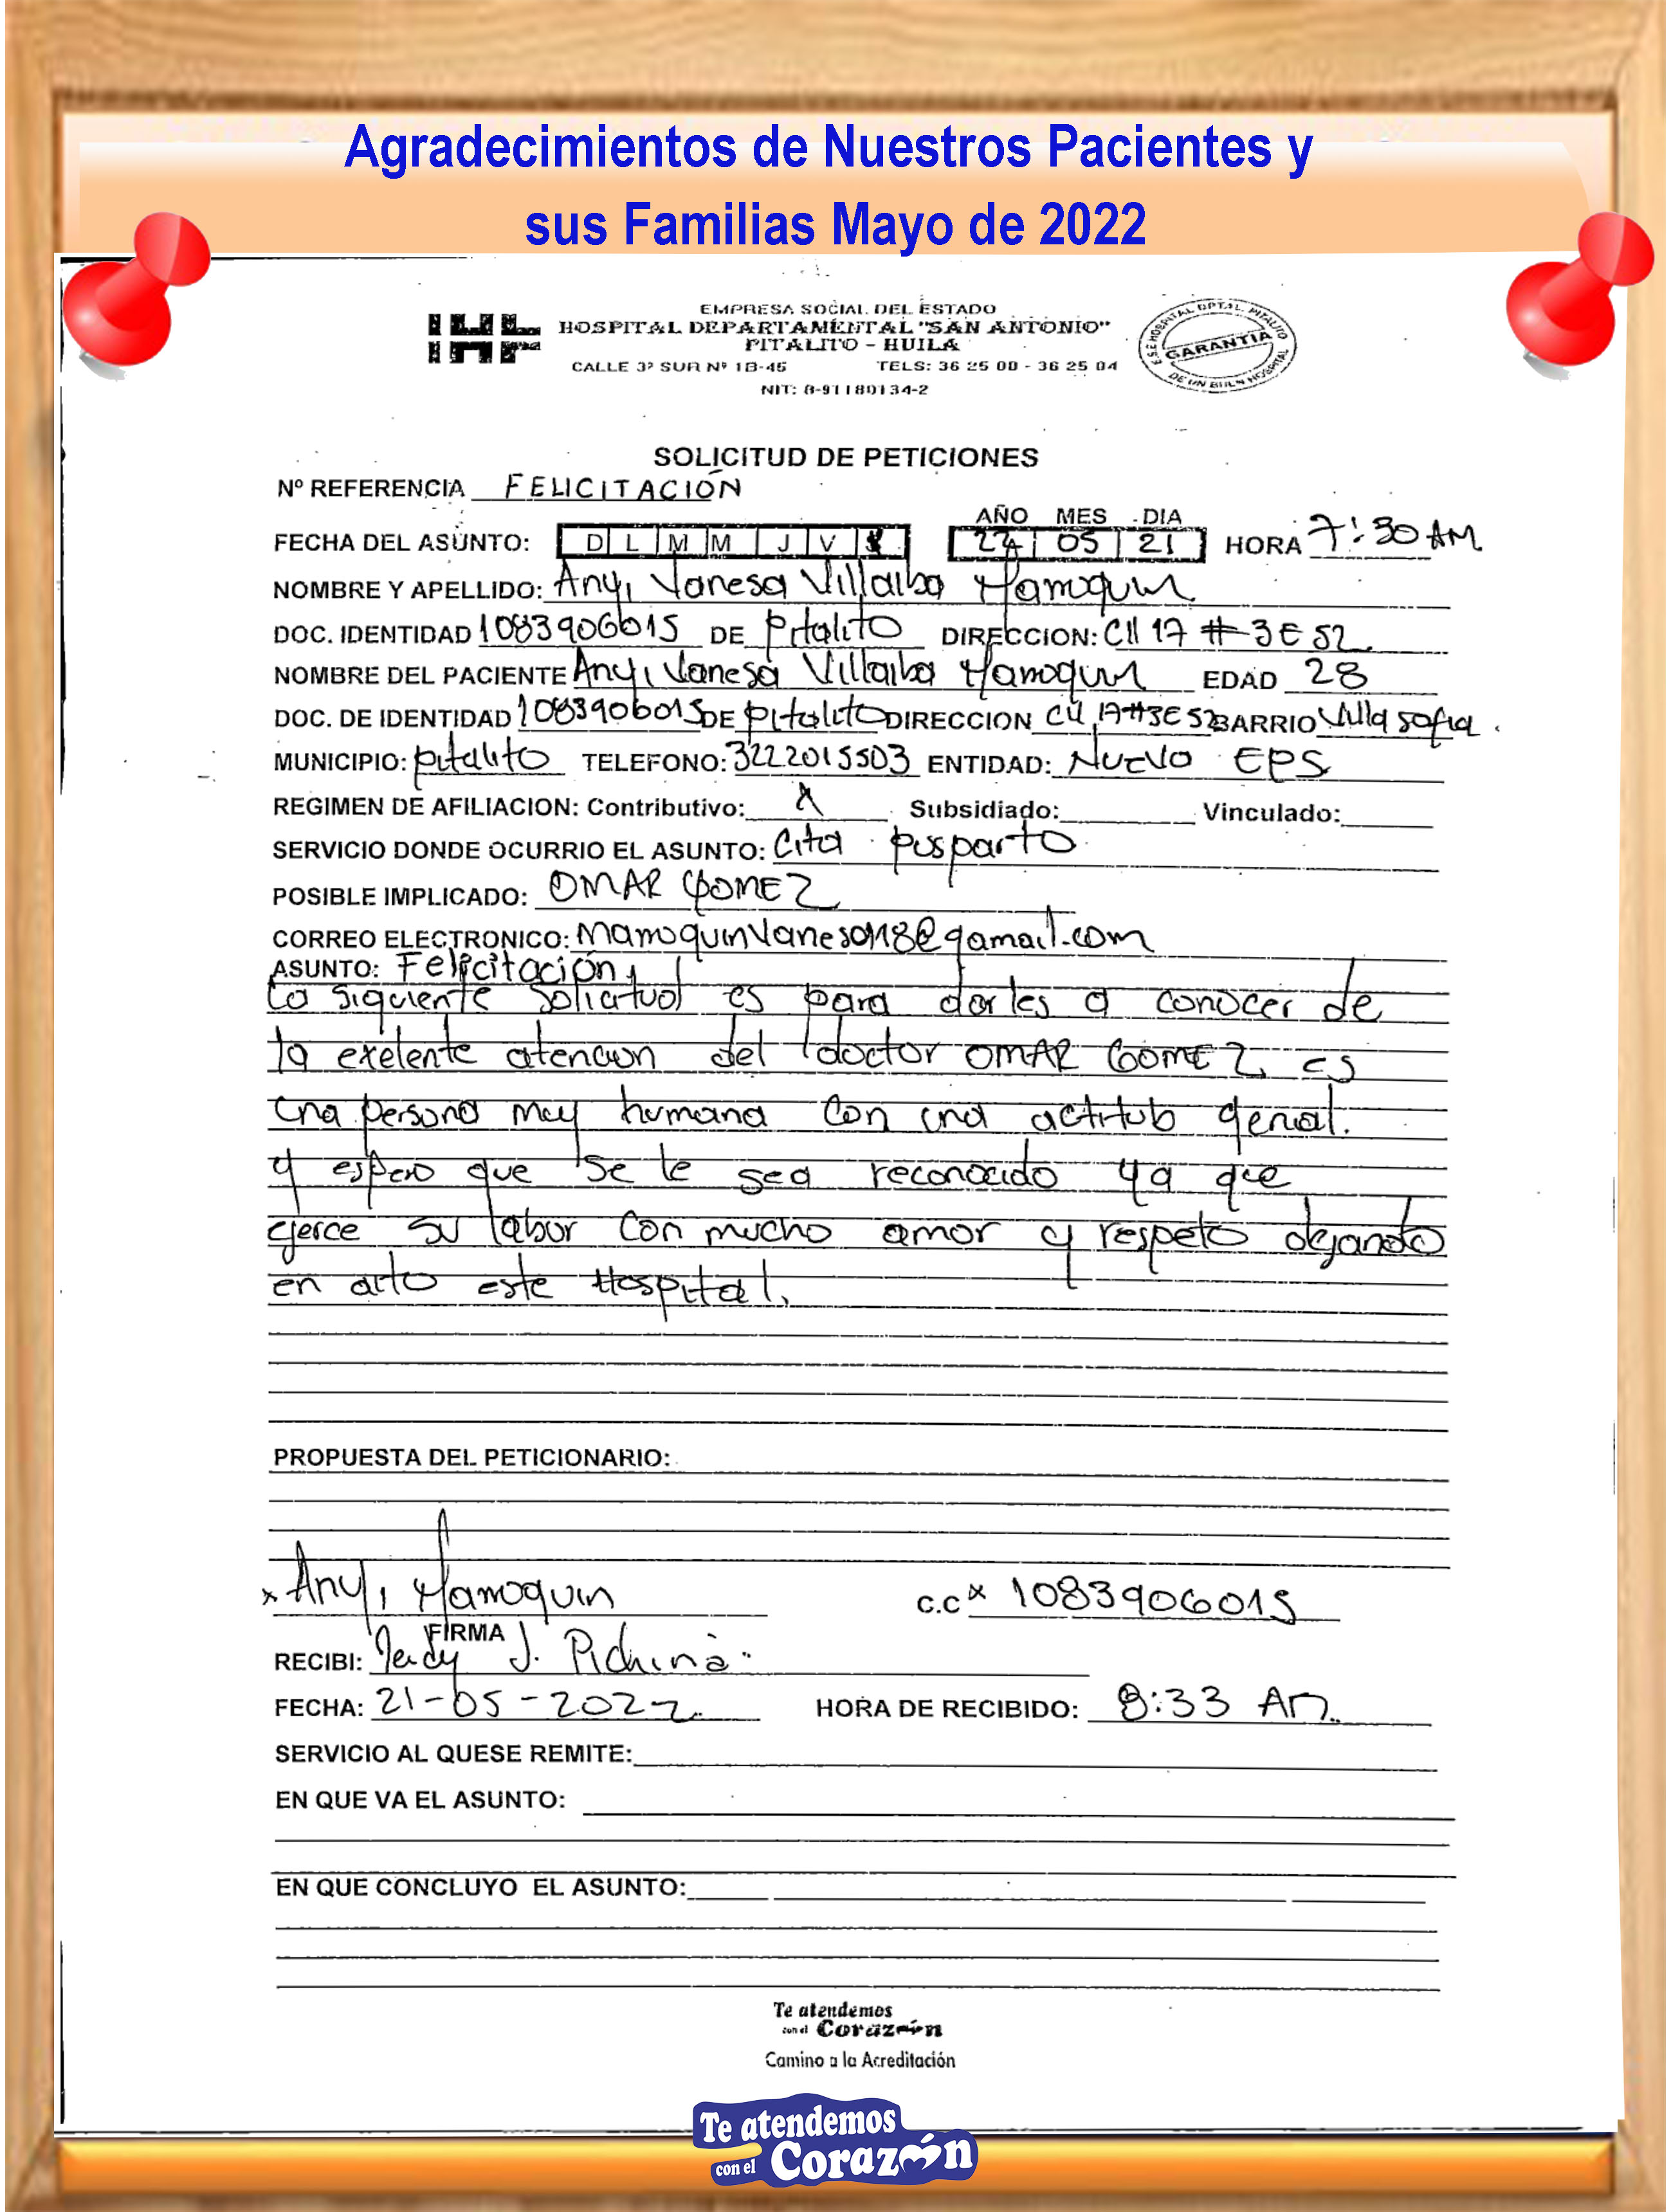 Agradecimientos de Nuestros Pacientes y
sus Familias Mayo de 2022
EMPRESA SOCIAL DEL ESTADO
HOSPITAL DEPARTAMENTAL "SAN ANTONIO"
PITALITO - HUILA
CALLE 3ª SUR Nº 1B-45 TELS: 36 25 00 - 36 25 04
NIT: 8-91180134-2
E.S.E HOSPITAL DPTAL. PITALITO
GARANTIA
DE UN BUEN HOSPITAL
SOLICITUD DE PETICIONES
Nº REFERENCIA FELICITACIÓN
AÑO MES DIA
FECHA DEL ASUNTO: D L M M J V 22 05 21 HORA 7:30 AM
NOMBRE Y APELLIDO: Anyi Vanesa Villalba Mamoquin
DOC. IDENTIDAD 1083906015 DE Pitalito DIRECCION: Cll 17 # 3E 52
NOMBRE DEL PACIENTE Anyi Vanesa Villalba Mamoquin EDAD 28
DOC. DE IDENTIDAD 1083906015 DE Pitalito DIRECCION Cll 17 # 3E 52 BARRIO Villa Sofia.
MUNICIPIO: Pitalito TELEFONO: 3222015503 ENTIDAD: Nuevo EPS
REGIMEN DE AFILIACION: Contributivo: X Subsidiado: Vinculado:
SERVICIO DONDE OCURRIO EL ASUNTO: Cita posparto
POSIBLE IMPLICADO: OMAR GOMEZ
CORREO ELECTRONICO: Mamoquinvanesa118@gamail.com
ASUNTO: Felicitación,
La siguiente solicitud es para darles a conocer de
la exelente atencion del doctor OMAR GOMEZ es
una persona muy humana con una actitub genial.
y espero que se le sea reconocido ya que
ejerce su labor con mucho amor y respeto dejando
en alto este Hospital.
PROPUESTA DEL PETICIONARIO:
x Anyi Mamoquin C.C x 1083906015
FIRMA
RECIBI: J.
FECHA: 21-05-2022 HORA DE RECIBIDO: 8:33 AM.
SERVICIO AL QUESE REMITE:
EN QUE VA EL ASUNTO:
EN QUE CONCLUYO EL ASUNTO:
Te atendemos
con el Corazón
Camino a la Acreditación
Te atendemos
con el Corazón